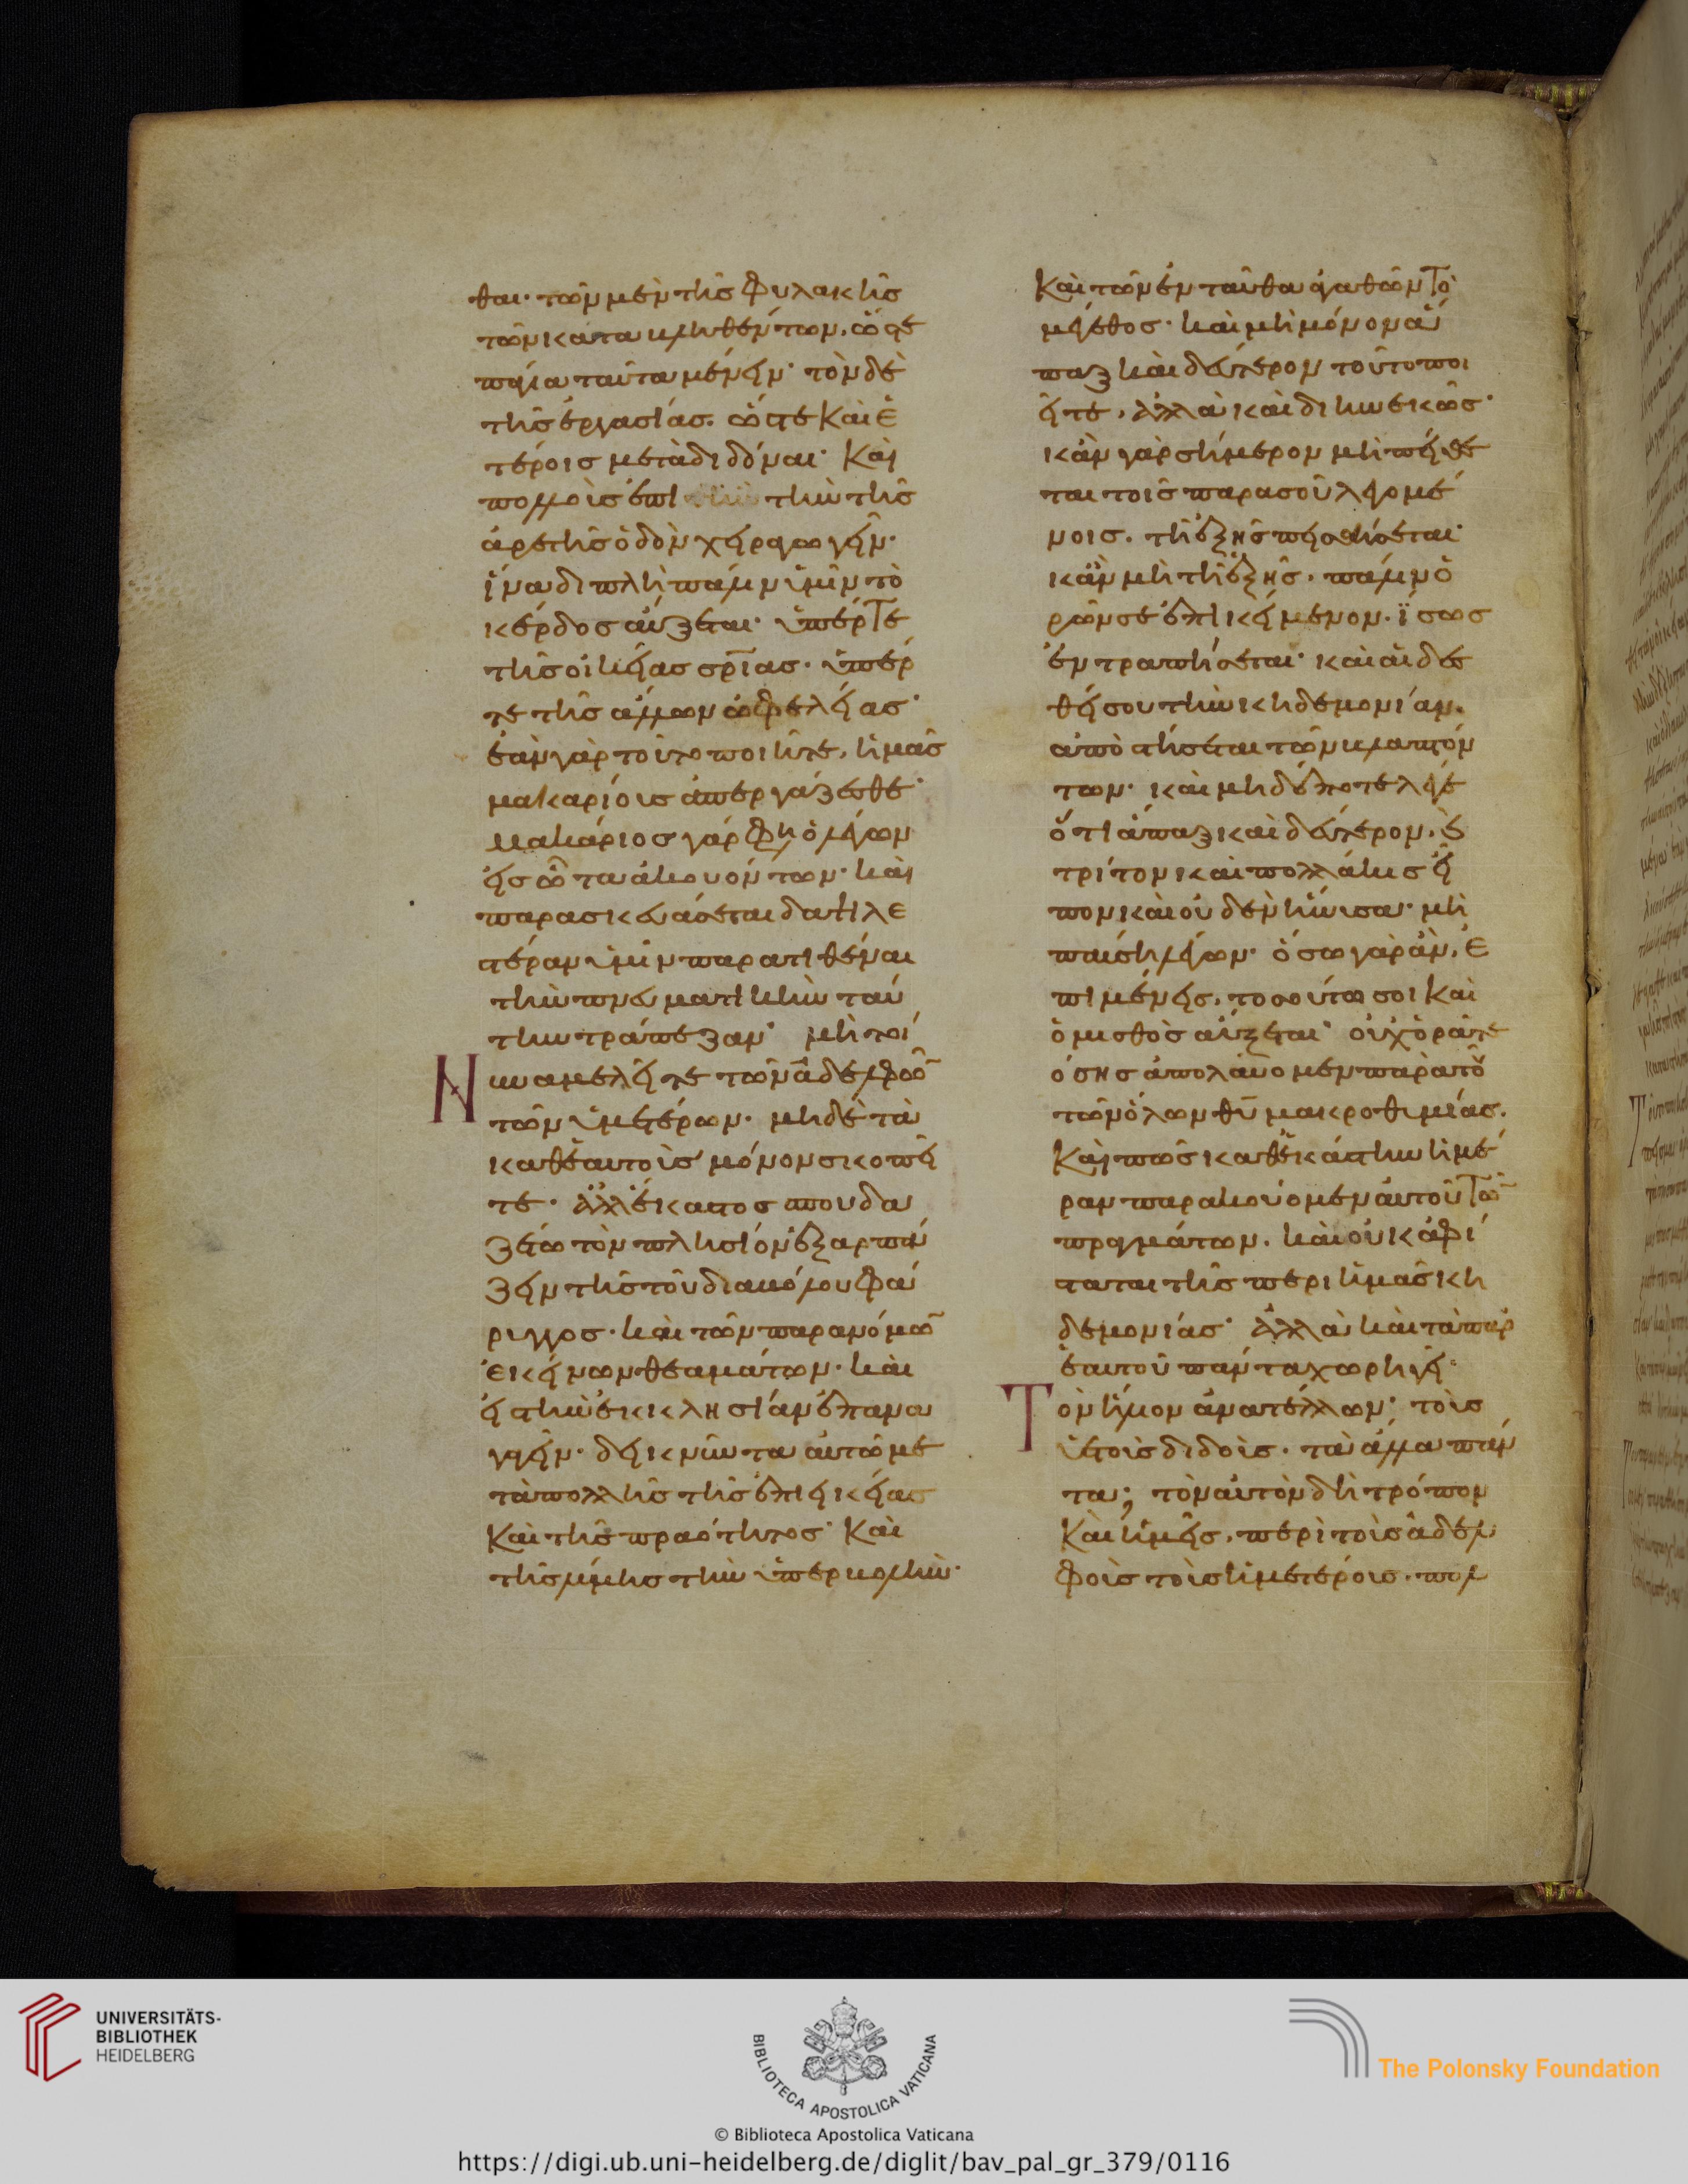 θαι· τῶν μὲν τῆς φυλακῆς
τῶν κατακληθέντων, ὥστε
πάγια ταῦτα μένειν· τὸν δὲ
τῆς ἐργασίας. ὥστε καὶ ἑ
τέροις μεταδιδόναι· καὶ
πολλοὺς ἐπὶ τὴν τῆς
ἀρετῆς ὁδὸν χειραγωγεῖν·
ἵνα διπλῆ πάλιν ὑμῖν τὸ
κέρδος αὔξεται· ὑπέρ τε
τῆς οἰκείας σρίας· ὑπέρ
τε τῆς ἄλλων ὠφελείας·
ἐὰν γὰρ τοῦτο ποιῆτε, ἡμᾶς
μακαρίους ἀπεργάζεσθε·
μακάριος γάρ φη ὁ λέγων
εἰς ὦτα ἀκουόντων· καὶ
παρασκευάσεται δαψιλε
στέραν ὑμῖν παρατιθέναι
τὴν πνευματικὴν ταύ
την τράπεζαν· μὴ τοί
Νυν ἀμελεῖτε τῶν ἀδελφῶ
τῶν ὑμετέρων· μηδὲ τὰ
καθ' ἑαυτοὺς μόνον σκοπεῖ
τε· ἀλλ' ἕκαστος σπουδα
ζέτω τὸν πλησίον ἐξαρπά
ζειν τῆς τοῦ διαβόλου φά
ρυγγος· καὶ τῶν παρανόμω
ἐκείνων θεαμάτων· καὶ
εἰς τὴν ἐκκλησίαν ἐπανα
γειν· δεικνῦντα αὐτῶ με
τὰ πολλῆς τῆς ἐπιεικείας
καὶ τῆς πραότητος· καὶ
τῆς λύμης τὴν ὑπερβολὴν·
Καὶ τῶν ἐνταῦθα ἀγαθῶν τὸ
μέγεθος· καὶ μὴ μόνον ἅ
παξ καὶ δεύτερον τοῦτο ποι
εῖτε, ἀλλὰ καὶ διηνεκῶς·
κἂν γὰρ σήμερον μὴ πείθε
ται τοῖς παρὰ σοῦ λεγομέ
νοις. τῆ ἑξῆς πεισθήσεται·
κἂν μὴ τῆ ἑξῆς. πάλιν ὁ
ρῶν σε ἐπικείμενον. ἴσως
ἐντραπήσεται· καὶ αἰδεσ
θείς σου τὴν κηδεμονίαν.
ἀποστήσεται τῶν βλαπτόν
των· καὶ μηδέποτε λέγε
ὅτι ἅπαξ καὶ δεύτερον. καὶ
τρίτον καὶ πολλάκις εἶ
πον καὶ οὐδὲν ἤνυσα· μὴ
παύση λέγων· ὅσω γὰρ ἂν ἐ
πιμένεις, τοσούτω σοι καὶ
ὁ μισθὸς αὔξεται· οὐχ ὁρᾶτε
ὅσης ἀπολαύομεν παρὰ τοῦ
τῶν ὅλων θυ μακροθυμίας.
Καὶ πῶς καθ' ἑκάστην ἡμέ
ραν παρακούομεν αὐτοῦ τῶ
πραγμάτων. καὶ οὐκ ἀφί
σταται τῆς περὶ ἡμᾶς κη
δεμονίας· ἀλλὰ καὶ τὰ παρ
ἑαυτοῦ πάντα χωρηγεῖ·
Τὸν ἥλιον ἀνατέλλων· τοὺς
ὑετοὺς διδοὺς. τὰ ἄλλα πάν
τα; τὸν αὐτὸν δὴ τρόπον
καὶ ἡμεῖς, περὶ τοὺς ἀδελ
φοὺς τοὺς ἡμετέρους. πολ
UNIVERSITÄTS-
BIBLIOTHEK
HEIDELBERG
BIBLIOTECA APOSTOLICA VATICANA
The Polonsky Foundation
© Biblioteca Apostolica Vaticana
https://digi.ub.uni-heidelberg.de/diglit/bav_pal_gr_379/0116